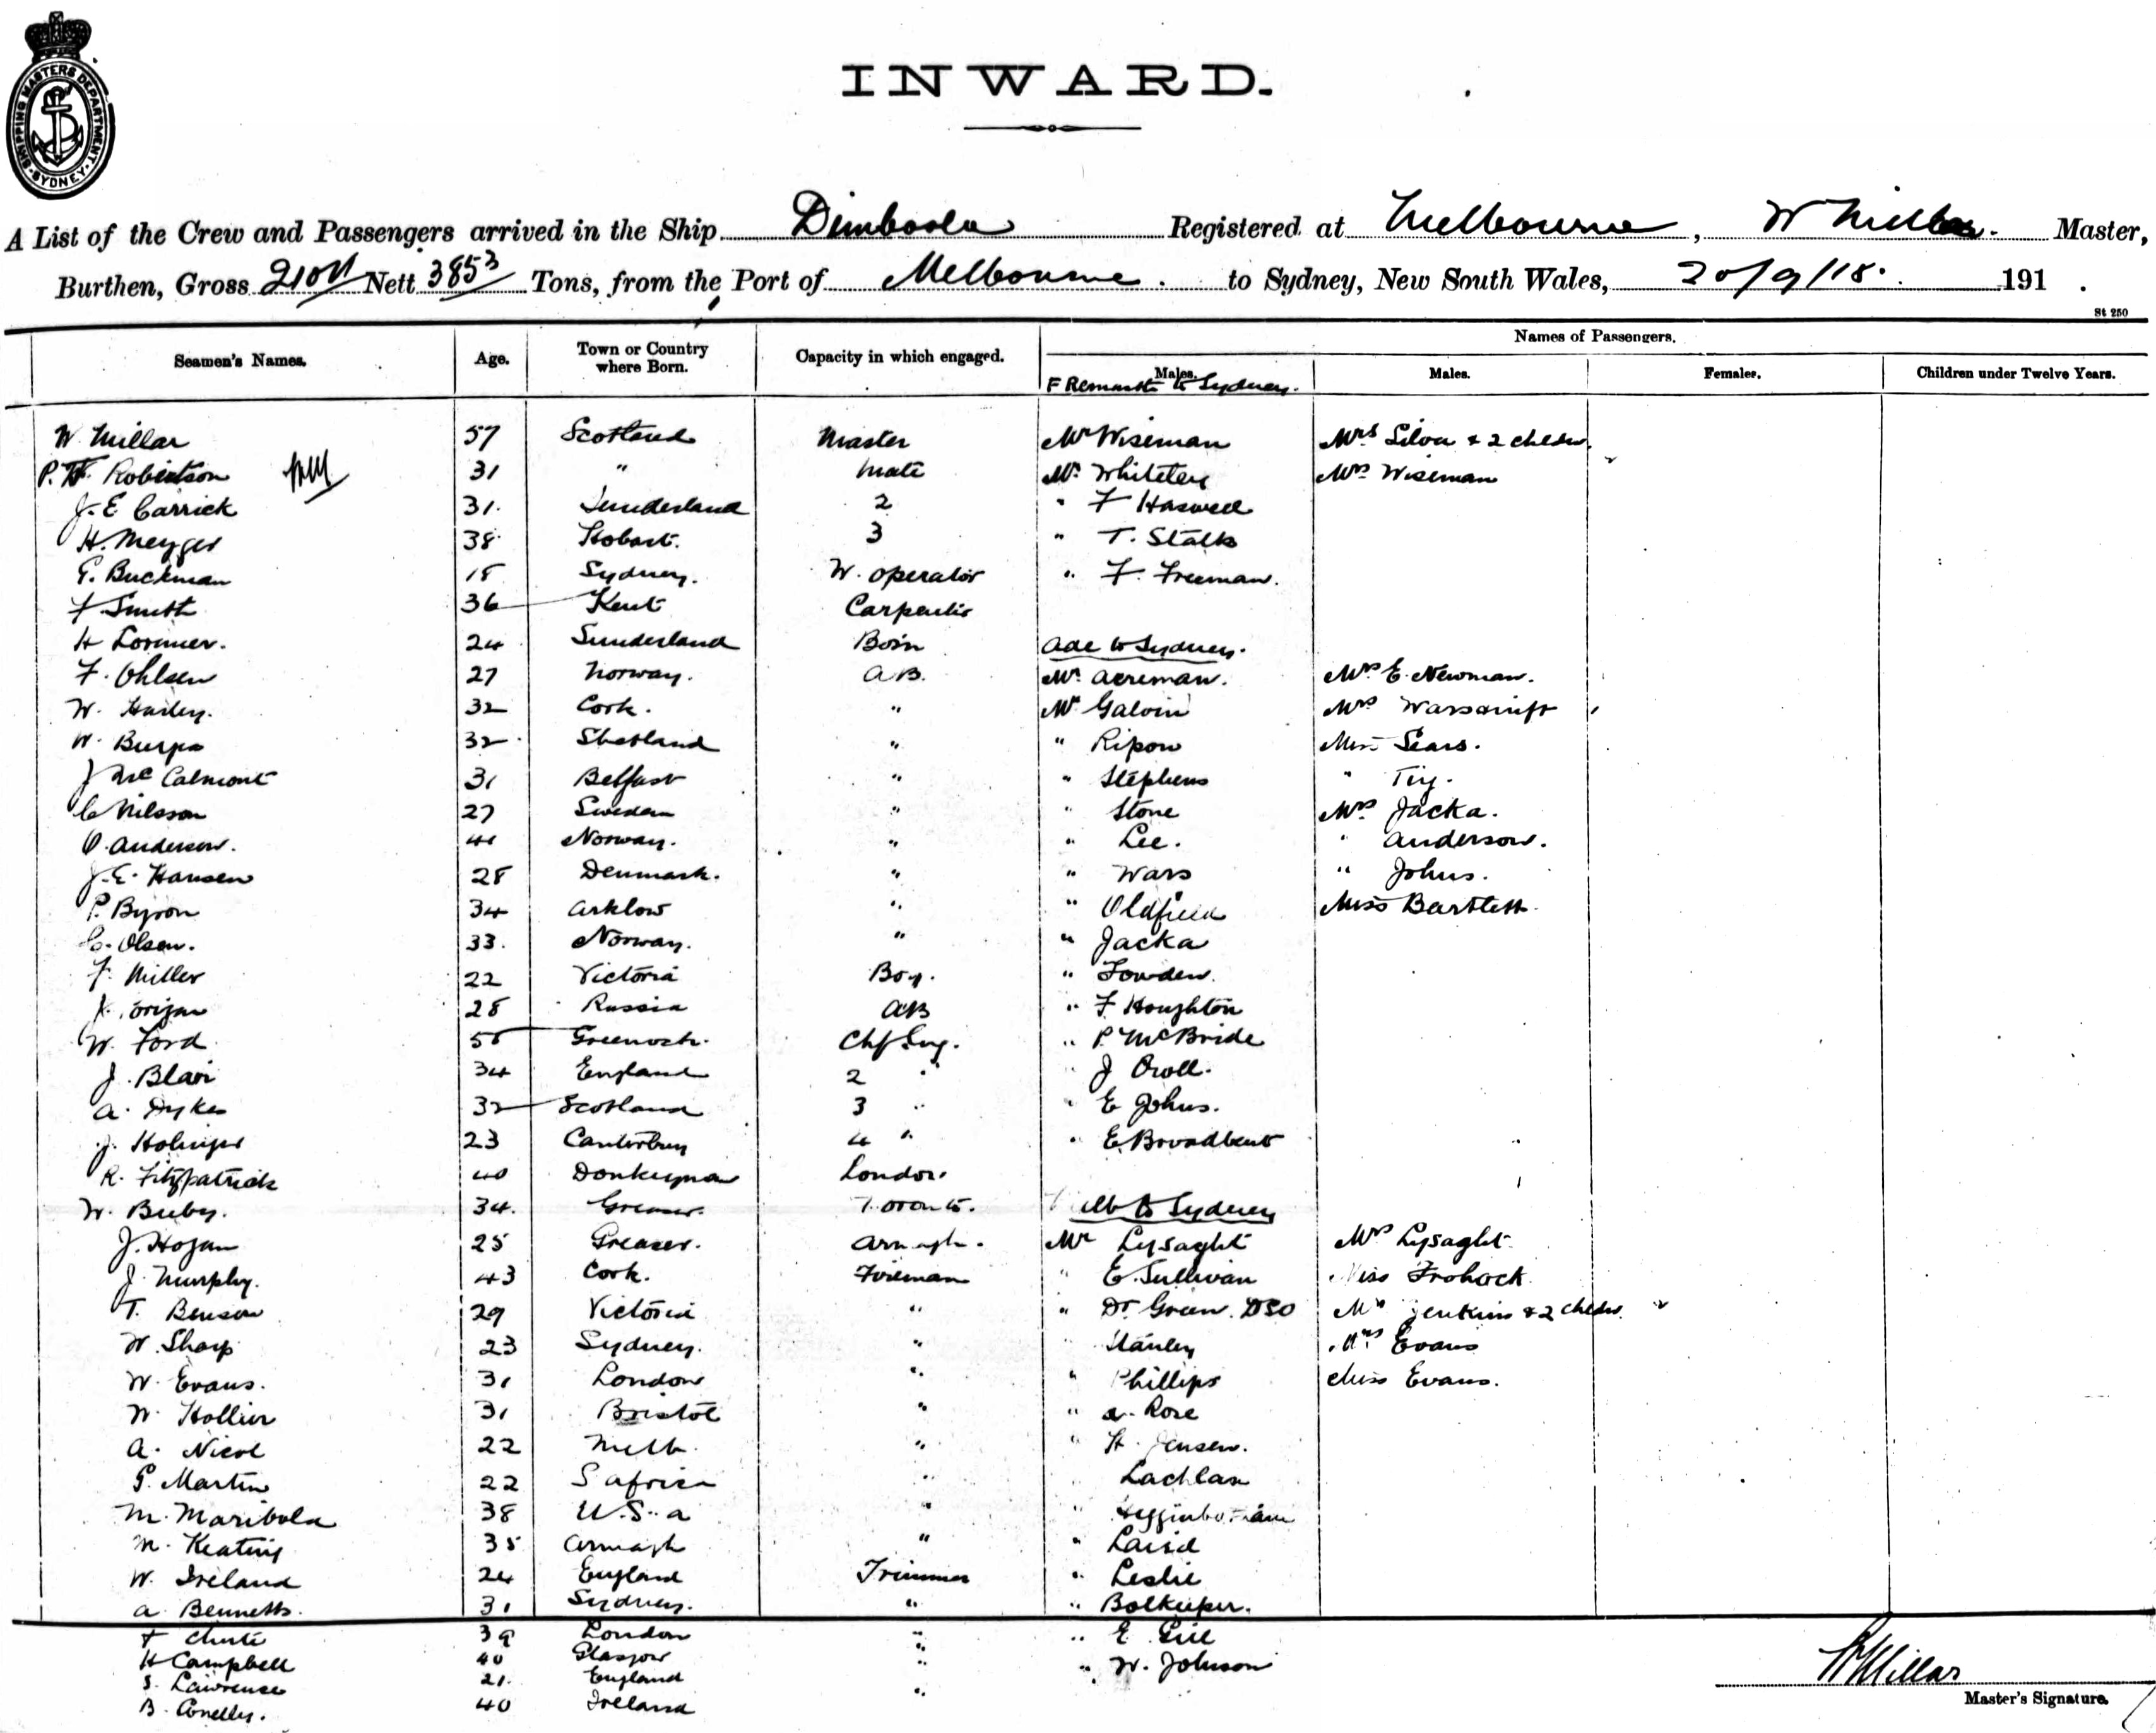 SHIPPING MASTERS DEPARTMENT
SYDNEY
INWARD.
A List of the Crew and Passengers arrived in the Ship Dimboola Registered at Melbourne, W Millar. Master,
Burthen, Gross Nett 3853 Tons, from the Port of Melbourne. to Sydney, New South Wales, 20/9/18. 191 .
St 250
Seamen's Names. Age. Town or Country where Born. Capacity in which engaged. Names of Passengers.
Males. Males. Females. Children under Twelve Years.
F Remantle to Sydney.
W. Millar 57 Scotland Master Mr Wiseman Mrs Silva & 2 chldn.
P. Robertson 31 " Mate Mr. Whiteley Mrs Wiseman
J. E Carrick 31. Sunderland 2 " F Haswell
H. Meyger 38 Hobart. 3 " T. Stalls
G. Buckman 18 Sydney. W. operator " F. Freeman.
F Smith 36 Kent Carpenter
H Lorimer. 24 Sunderland Bosn Ade to Sydney.
F. Ohlsen 27 Norway. A.B. Mr Acreman. Mrs E. Newman.
W. Harley. 32 Cork. " Mr Galvin Mrs
W. 32 Shetland " " Ripon Miss Sears.
J McCalmont 31 Belfast " " Stephens "
C Nilsson 27 Sweden " " Stone Mrs Jacka.
O. Anderson. 41 Norway. " " Lee. " Anderson.
J. E. Hansen 28 Denmark. " " Wars " Johns.
P. Byron 34 Arklow " " Oldfield Miss Bartlett.
C. Olsen. 33. Norway. " " Jacka
F. Miller 22 Victoria Boy. " Lowden.
28 Russia AB " F Houghton
W. Ford 55 Greenock. Chf Eng. " P. McBride
J. Blair 34 England 2 " " J Croll.
A. Dykes 32 Scotland 3 " " E Johns.
J. 23 Canterbury 4 " " E. Broadbent
R. Fitzpatrick 40 Donkeyman London
W. Buby. 34. Greaser. Toronto. Melb to Sydney
J. Hogan 25 Greaser. Armagh. Mr Lysaght Mrs Lysaght
J. Murphy. 43 Cork. Fireman " E. Sullivan Miss Frohock
T. Benson 29 Victoria " " Dr Green. DSO Mrs Jenkins & 2 chldn.
W. Sharp 23 Sydney. " " Stanley Mrs Evans
W. Evans. 31 London " " Phillips Miss Evans.
W. Hollier 31 Bristol " " A. Rose
A. Nicol 22 Melb. " " H. Jensen.
G. Martin 22 S Africa " " Lachlan
M. Maribola 38 U.S.A " " Higginbotham
M. Keating 35 Armagh " " Laird
W. Ireland 24 England Trimmer " Leslie
A Bennetts. 31 Sydney. " " Bolkeeper.
39 London " " E. Gill
H Campbell 40 Glasgow " " W. Johnson
S. Lawrence 21. England "
B. Conelley. 40 Ireland "
W Millar
Master's Signature.